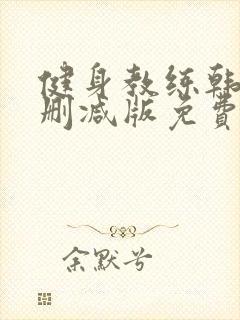 健身教练韩
删减版免费
余默兮